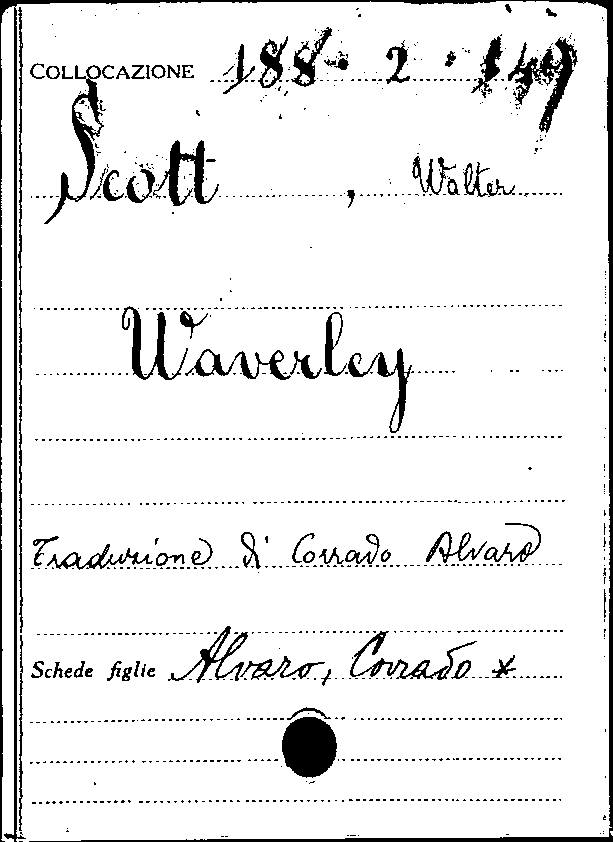 COLLOCAZIONE 188 · 2 · 149
Scott, Walter
Waverley
Traduzione di Corrado Alvaro
Schede figlie Alvaro, Corrado *